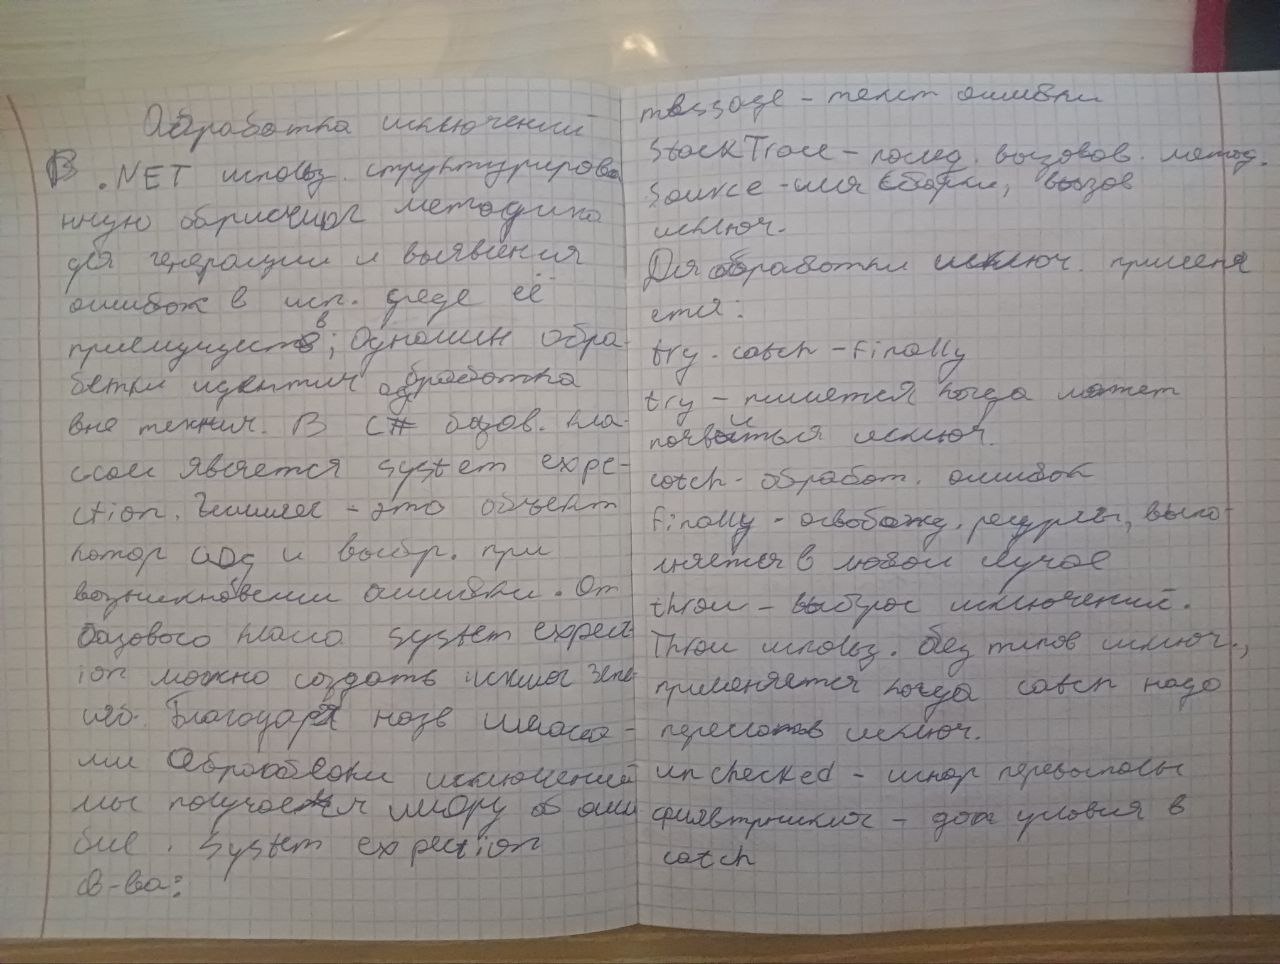 Обработка исключений
В .NET использ. структурирова
нную обр исключ методика
для генерации и выявления
ошибок в исп. среде её
приемуществ; Одномин обра-
ботки идентич обработка
вне технич. В C# базов. кла-
ссом является system expe-
ction. - это объект
котор созд и выбр. при
возникновении ошибки. От
базового класса system expect
ion можно создать исключ
Благодаря назв
ми Обработки исключений
мы получаем инфу об оши
бке. System expection
св-ва:
message - текст ошибки
StackTrace - послед. вызовов. метод.
Source - имя сборки, вызов
исключ.
Для обработки исключ. применя
ется:
try. catch - finally
try - пишется когда может
появиться исключ.
catch - обработ. ошибок
finally - освобожд. ресурсы, выпо-
лняется в любом случае
throw - выброс исключений.
Throw использ. без типов исключ.,
применяется когда catch надо
переслать исключ.
unchecked - игнор переполны
фильтр исключ - доп условия в
catch